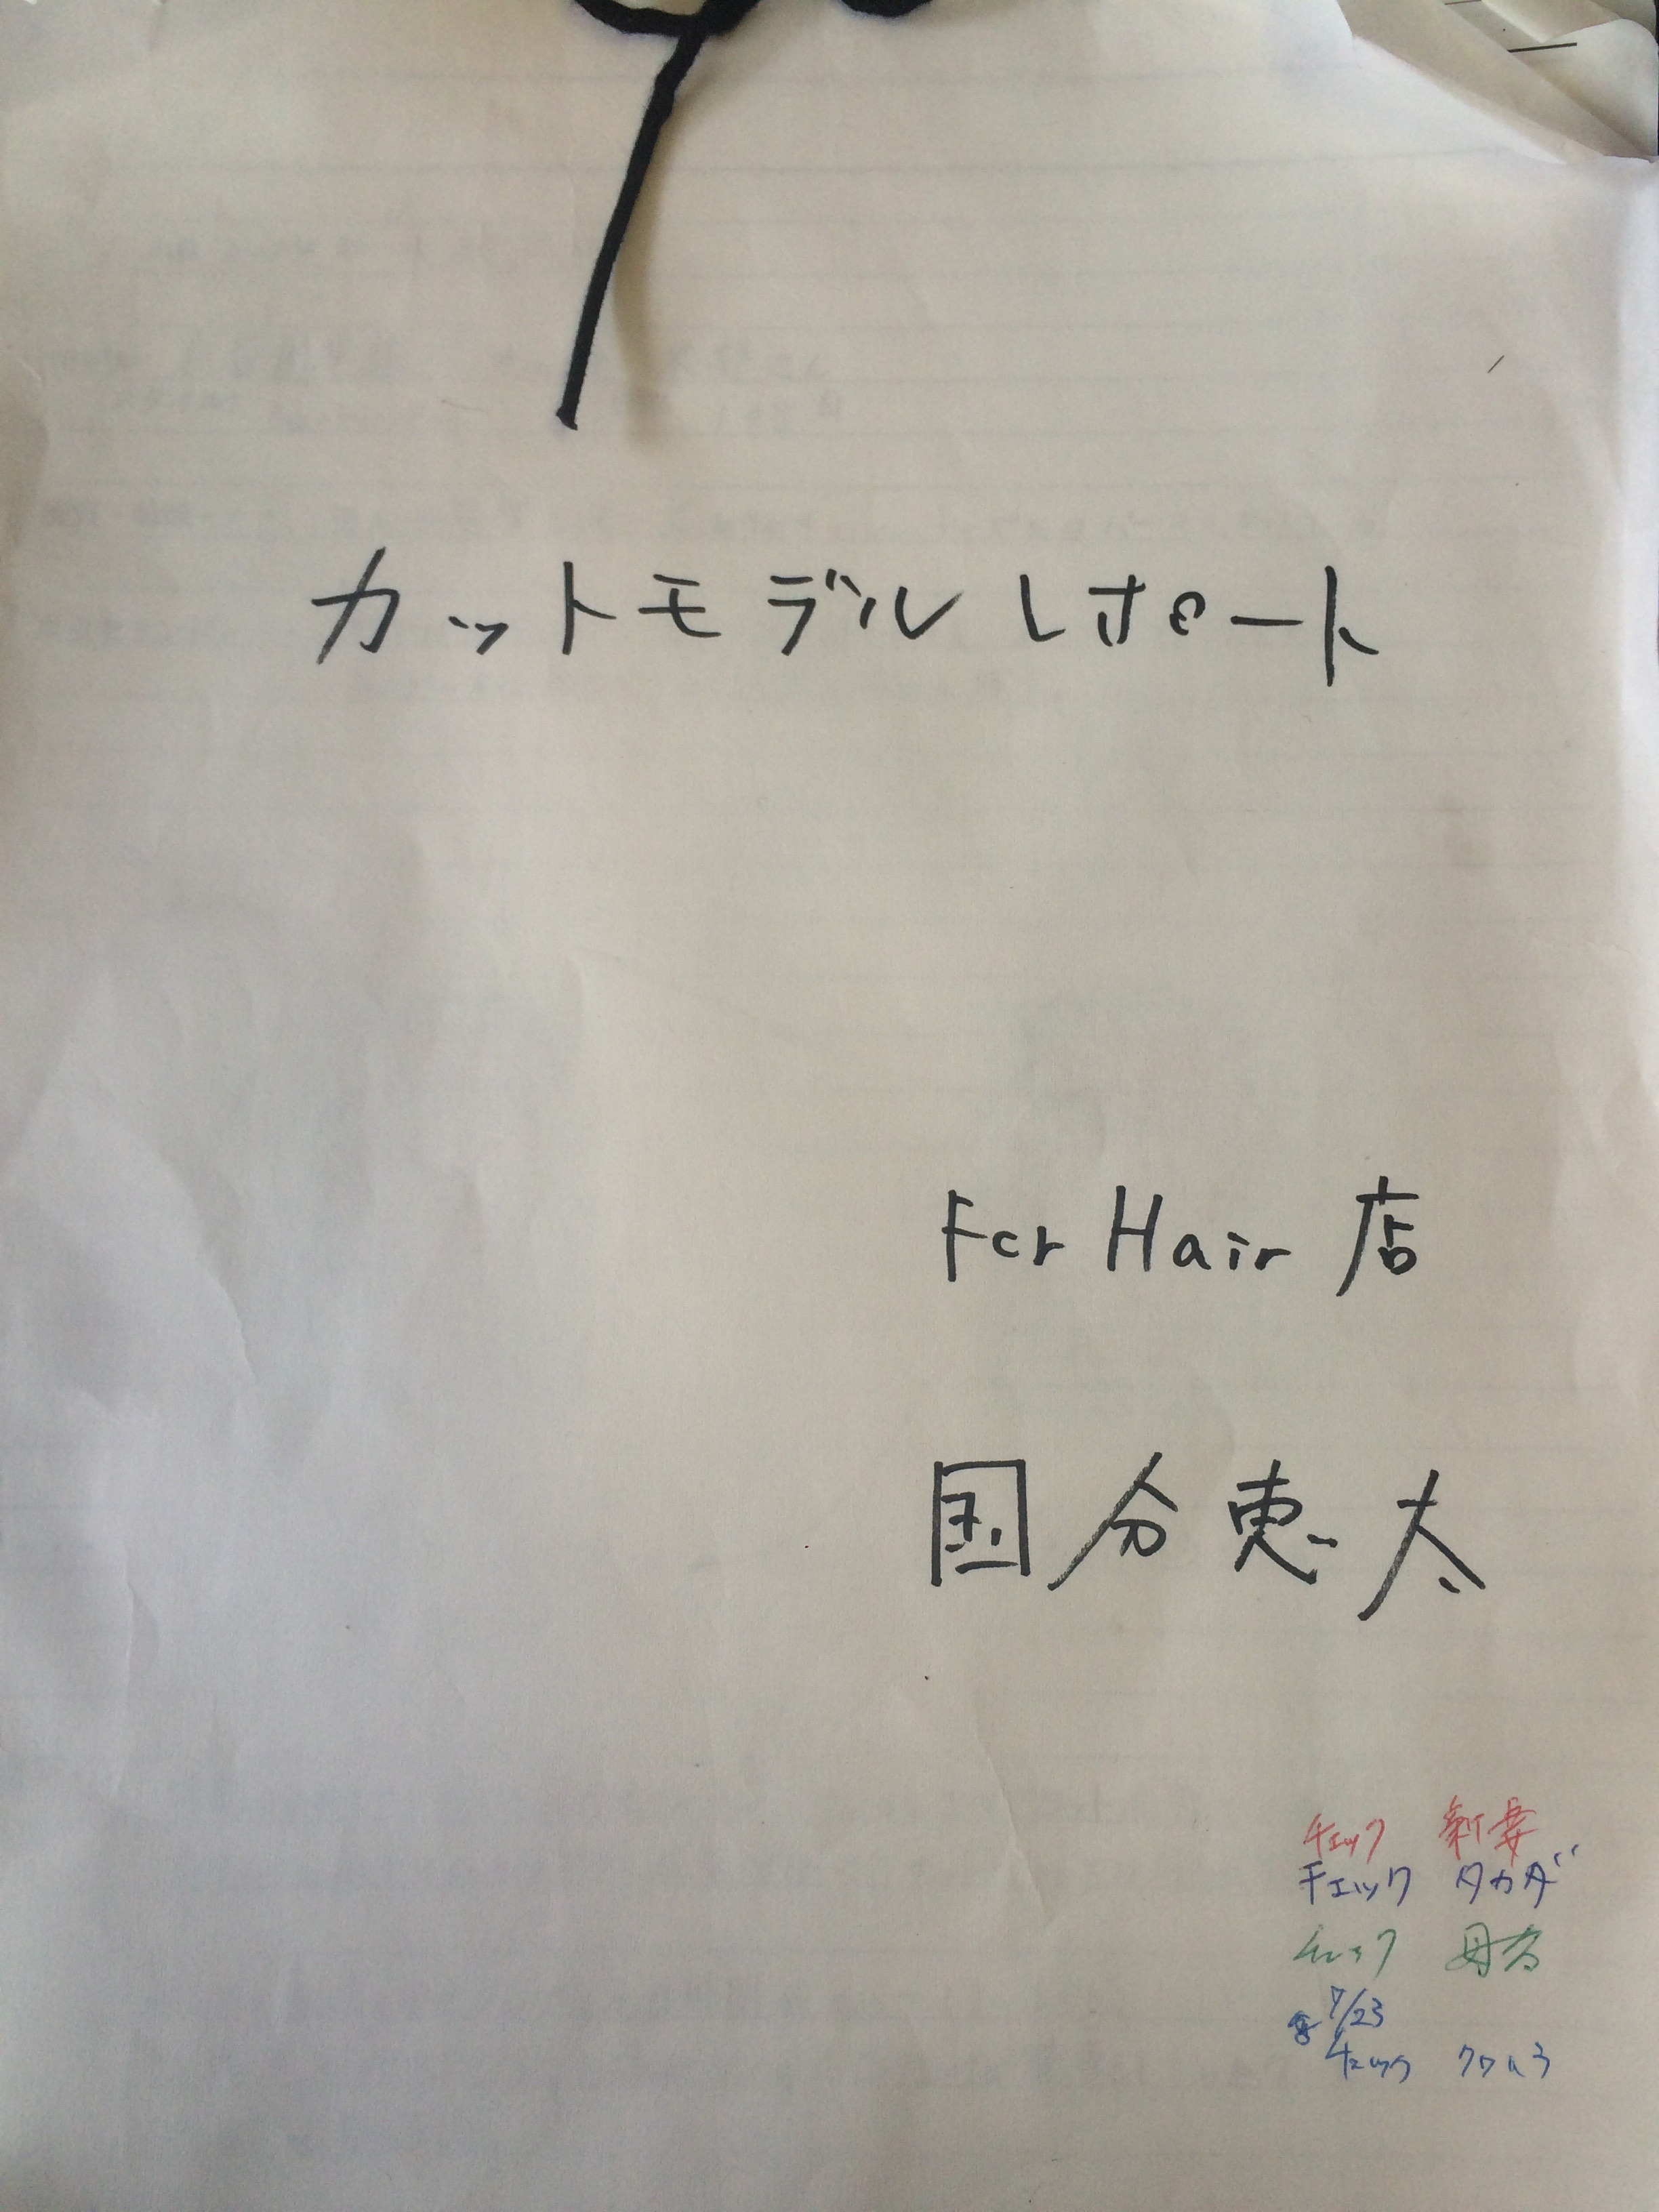 カットモデルレポート
For Hair 店
国分恵太
チェック 新妻
チェック タカダ
チェック
7/23
チェック クワハラ